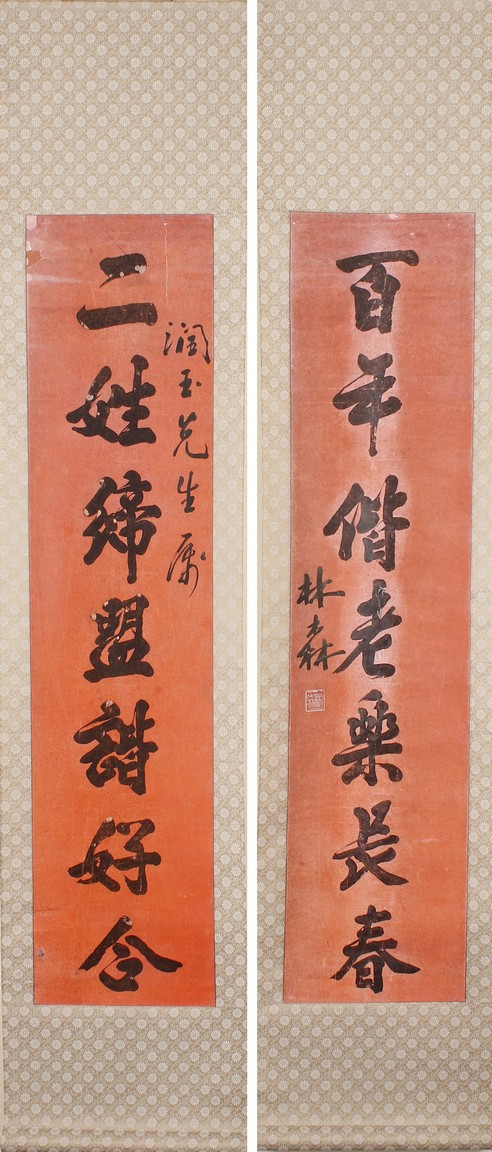 百年偕老樂長春
林森
潤玉先生属
二姓締盟諧好合